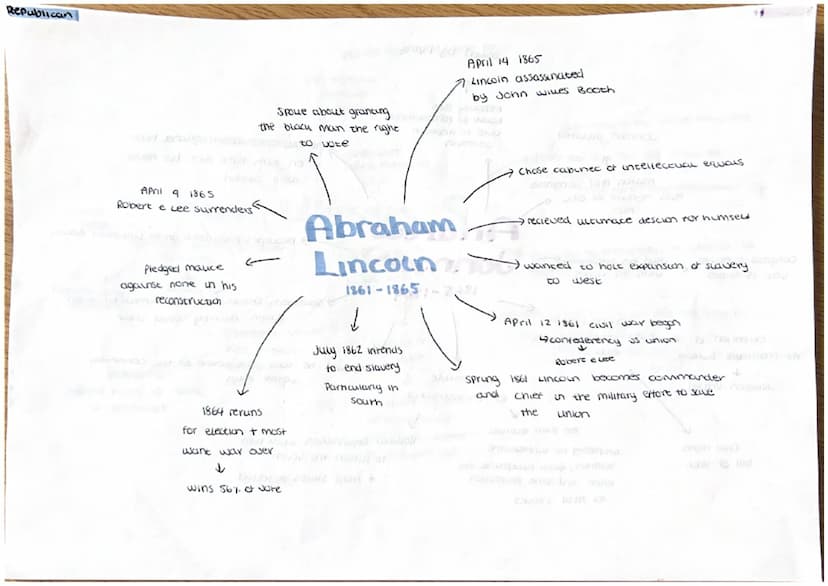 Republican
April 14 1865
Lincoln assassinated
by John Wilkes Booth
Spoke about granting
the black man the right
to vote
Chose cabinet of intellectual equals
April 9 1865
Robert e Lee surrenders
Abraham
Lincoln
1861-1865
recieved ultimate descion for himself
wanted to halt expansion of slavery
to west
Pledged malice
against none in his
reconstruction
April 12 1861 civil war began
↳ confederency vs union
Robert e Lee
July 1862 intends
to end slavery
Particularly in
South
Spring 1861 Lincoln becomes commander
and chief in the military effort to save
the union
1864 reruns
for election + most
want war over
wins 56% of vote